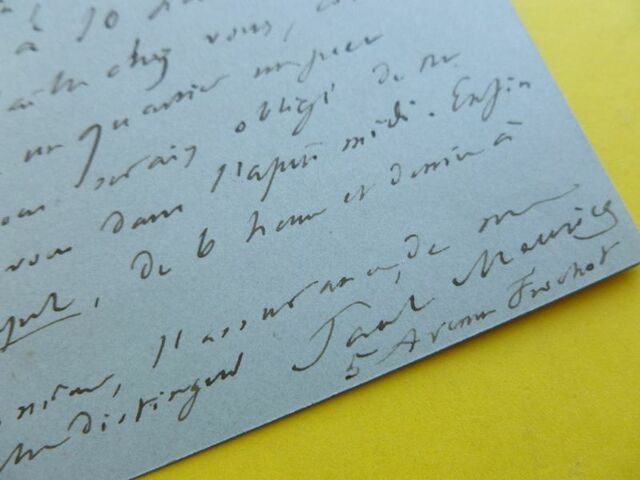 à 10
chez vous,
un quartier un peu
serais obligé de m
vous dans l'après midi. Enfin
, de 6 heures et demie à
l'assurance, de m
distingués Paul Meurice
5 Avenue Frochot